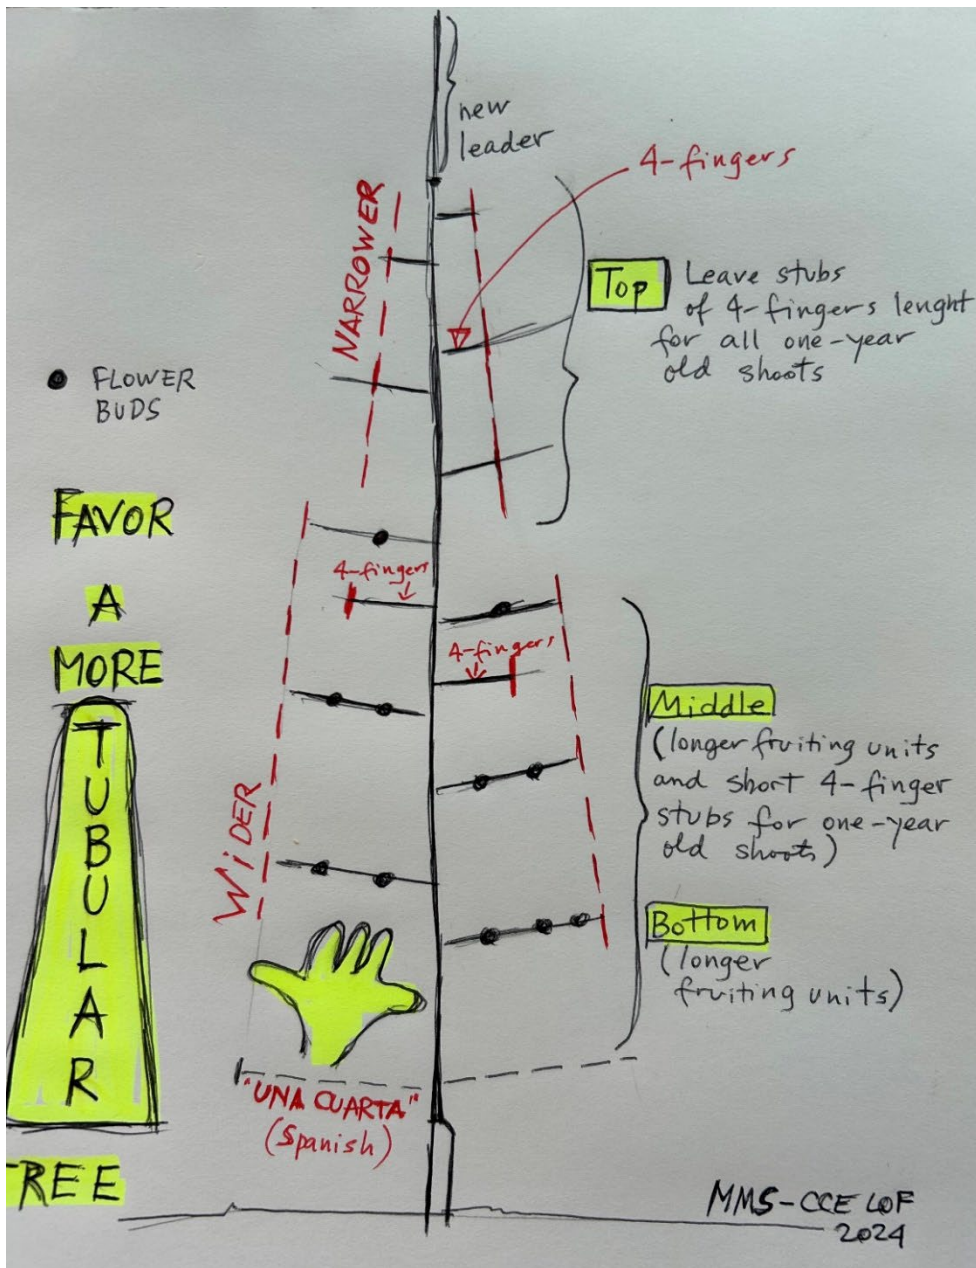 new
leader
4-fingers
NARROWER
Top
Leave stubs
of 4-fingers lenght
for all one-year
old shoots
FLOWER
BUDS
FAVOR
A
MORE
TUBULAR
TREE
4-fingers
4-fingers
WIDER
Middle
(longer fruiting units
and short 4-finger
stubs for one-year
old shoots)
Bottom
(longer
fruiting units)
"UNA CUARTA"
(Spanish)
MMS-CCE LOF
2024